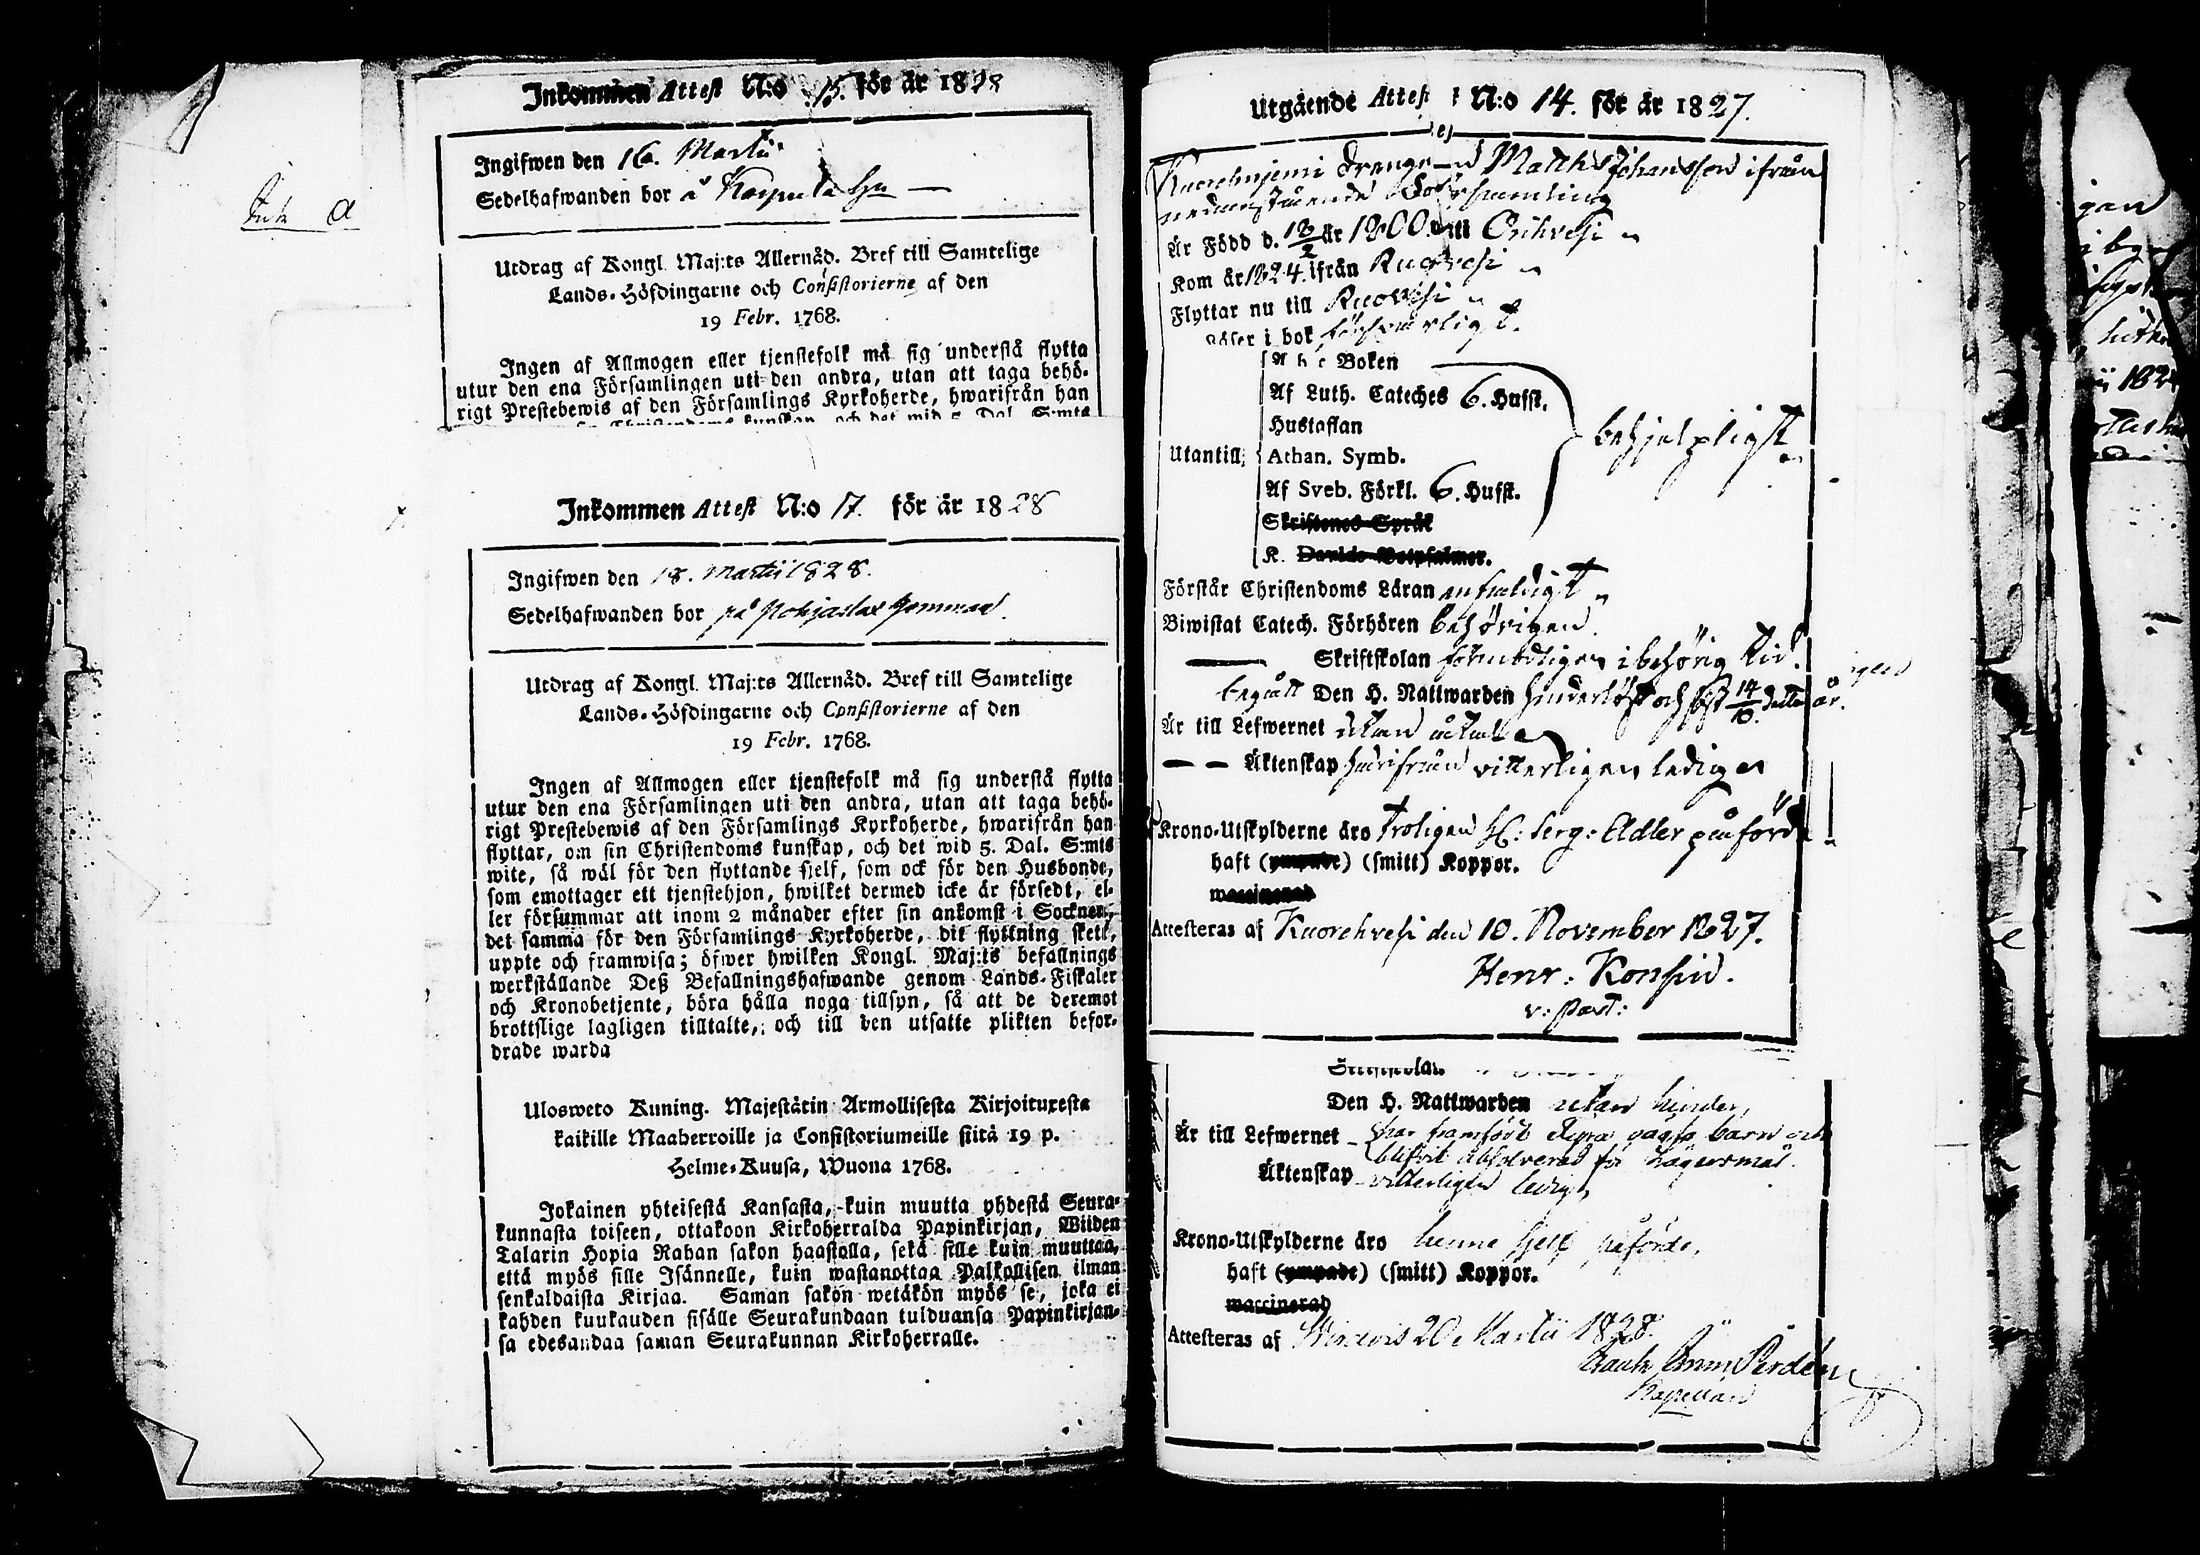 Inkommen Attest N:o 15. för år 1828
Ingifwen den 16. Martii
Sedelhafwanden bor å
Utdrag af Kongl. Maj:ts Allernåd. Bref till Samtelige
Lands-Höfdingarne och Consistorierne af den
19 Febr. 1768.
Ingen af Allmogen eller tjenstefolk må sig understå flytta
utur den ena Församlingen uti den andra, utan att taga behö-
rigt Prestebewis af den Församlings Kyrkoherde, hwarifrån han
Christendoms kunskap, och det wid 5. Dal. S:mts
Inkommen Attest N:o 17. för år 1828
Ingifwen den 18. Martii 1828.
Sedelhafwanden bor på
Utdrag af Kongl. Maj:ts Allernåd. Bref till Samtelige
Lands-Höfdingarne och Consistorierne af den
19 Febr. 1768.
Ingen af Allmogen eller tjenstefolk må sig understå flytta
utur den ena Församlingen uti den andra, utan att taga behö-
rigt Prestebewis af den Församlings Kyrkoherde, hwarifrån han
flyttar, om sin Christendoms kunskap, och det wid 5. Dal. S:mts
wite, så wäl för den flyttande sjelf, som ock för den Husbonde,
som emottager ett tjenstehjon, hwilket dermed icke är försedt, el-
ler försummar att inom 2 månader efter sin ankomst i Socknen,
det samma för den Församlings Kyrkoherde, dit flyttning skett,
uppte och framwisa; öfwer hwilken Kongl. Maj:ts befallnings
werkställande Deß Befallningshafwande genom Lands-Fiskaler
och Kronobetjente, böra hålla noga tillsyn, så att de deremot
brottslige lagligen tilltalte, och till den utsatte plikten befor-
drade warda
Ulosweto Kuning. Majestätin Armollisesta Kirjoituxesta
kaikille Maaherroille ja Consistoriumeille siitä 19 p.
Helme-Kuusa, Wuona 1768.
Jokainen yhteisestä Kansasta, kuin muutta yhdestä Seura-
kunnasta toiseen, ottakoon Kirkoherralda Papinkirjan, Wiiden
Talarin Hopia Rahan sakon haastolla, sekä sille kuin muuttaa,
että myös sille Isännelle, kuin wastanottaa Palkollisen ilman
senkaldaista Kirjaa. Saman sakon wetäkön myös se, joka ei
kahden kuukauden sisälle Seurakundaan tulduansa Papinkirjan-
sa edesandaa saman Seurakunnan Kirkoherralle.
Utgående Attest N:o 14. för år 1827.
Drengen Matths Johansson ifrån
nedanstående Församling
Är Född d. 18/2 år 1800. uti Orihvesi
Kom år 1824. ifrån Ruovesi
Flyttar nu till Ruovesi
Läser i bok försvarligt.
A b c Boken
Af Luth. Cateches 6. Hufst.
Hustaflan
Utantill; Athan. Symb. behjelpligt
Af Sveb. Förkl. 6. Hufst.
Skriftenes Språk
K. Davids Botpsalmer.
Förstår Christendoms Läran enfaldigt
Biwistat Catech. Förhören behörigen.
Skriftskolan förmodligen i behörig tid.
begått Den H. Nattwarden hinderlöst och sist 14/10. detta år.
Är till Lefwernet utan åtal
Äktenskap härifrån vitterligen ledig
Krono-Utskylderne äro troligen H: Serg: Adler påförde
haft (ympade) (smitt) Koppor.
waccinerad
Attesteras af Kuorehvesi den 10. November 1827.
Henr: Konsin.
v: Past:
Skriftskolan
Den H. Nattwarden utan hinder,
Är till Lefwernet har framfödt oägta barn och
blifvit absolverad för lägersmål.
Äktenskap vitterligen ledig,
Krono-Utskylderne äro henne sjelf påförde,
haft (ympade) (smitt) Koppor.
waccinerad
Attesteras af 20 Martii 1828.
Kapellan